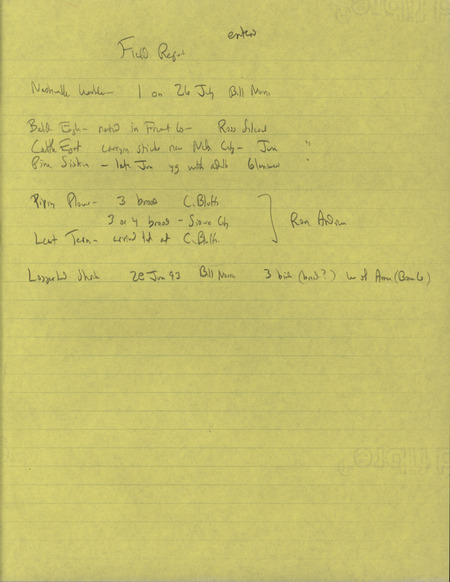 enters
Field Report
Nashville Warbler - 1 on 26 July Bill
Bald Eagle - nested in Fremont Co - Ross Silcock
Cattle Egret carrying sticks near City - June "
Pine Siskin - late June yg with adult Glenwood "
Piping Plover - 3 broods C. Bluffs
3 or 4 broods - Sioux City
Least Tern - at C. Bluffs
Ron
Loggerhead Shrike 28 Jun 93 Bill 3 birds (brood?) of